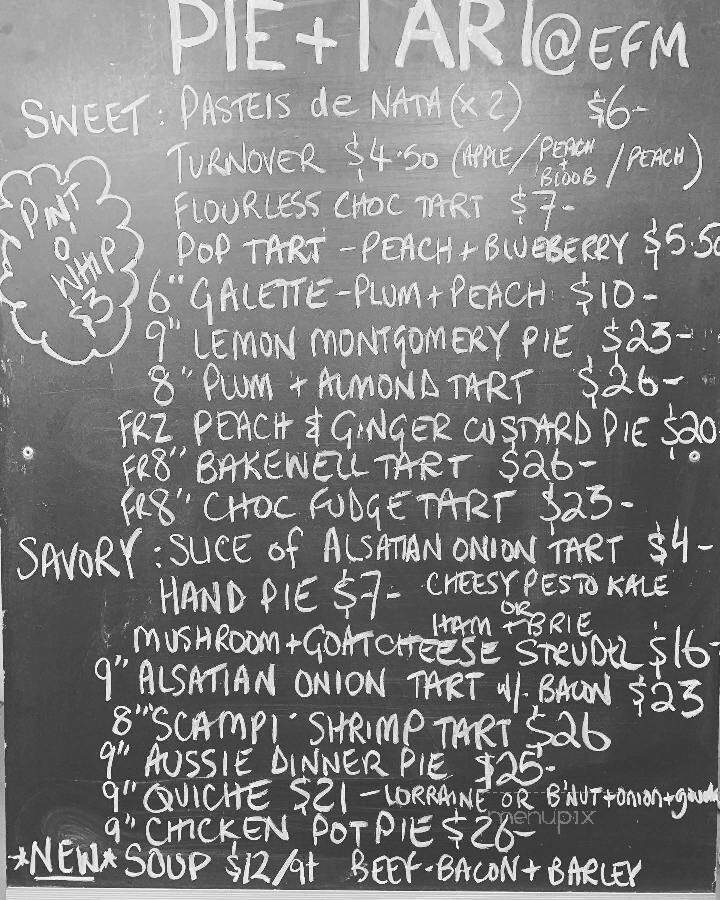 PIE + TART @ EFM
SWEET: PASTEIS de NATA (x 2) $6-
TURNOVER $4.50 (APPLE / PEACH + BLOOB / PEACH)
FLOURLESS CHOC TART $7-
POP TART - PEACH + BLUEBERRY $5.50
PINT
O'
WHIP
$3
6" GALETTE - PLUM + PEACH $10-
9" LEMON MONTGOMERY PIE $23-
8" PLUM + ALMOND TART $26-
FRZ PEACH & GINGER CUSTARD PIE $20
FR8" BAKEWELL TART $26-
FR8" CHOC FUDGE TART $23-
SAVORY: SLICE of ALSATIAN ONION TART $4-
HAND PIE $7- CHEESY PESTO KALE
OR
HAM + BRIE
MUSHROOM + GOATCHEESE STRUDEL $16-
9" ALSATIAN ONION TART w/. BACON $23
8" SCAMPI SHRIMP TART $26
9" AUSSIE DINNER PIE $25-
9" QUICHE $21 - LORRAINE OR B'NUT + onion + gouda
menupix
9" CHICKEN POT PIE $26-
*NEW* SOUP $12/qt BEEF-BACON + BARLEY